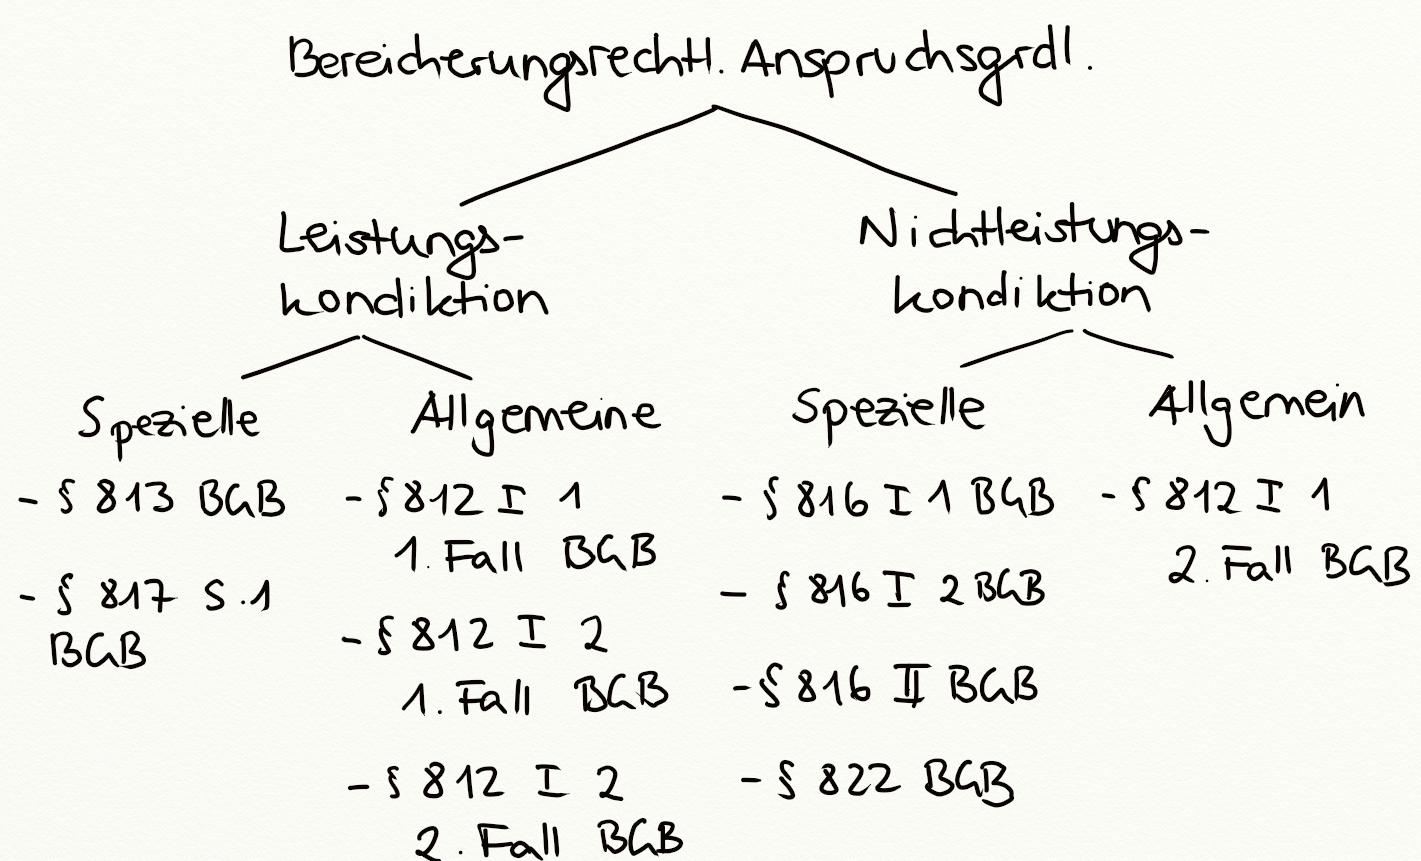 Bereicherungsrechtl. Anspruchsgrdl.
Leistungs-
kondiktion
Nichtleistungs-
kondiktion
Spezielle
- § 813 BGB
- § 817 S.1
BGB
Allgemeine
- § 812 I 1
1. Fall BGB
- § 812 I 2
1. Fall BGB
- § 812 I 2
2. Fall BGB
Spezielle
- § 816 I 1 BGB
- § 816 I 2 BGB
- § 816 II BGB
- § 822 BGB
Allgemein
- § 812 I 1
2. Fall BGB